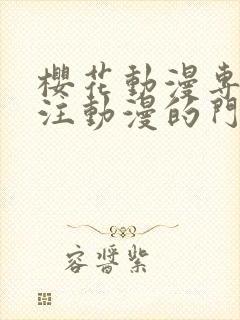 櫻花動漫專
注動漫的門
容醬紫